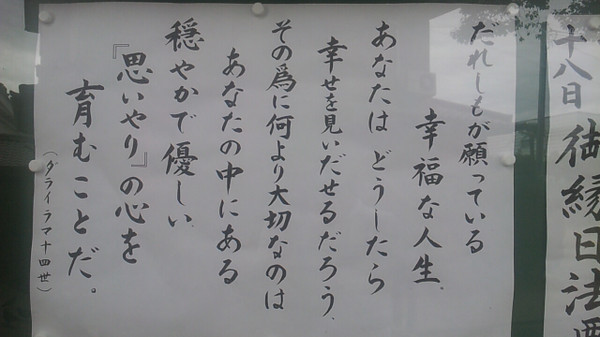 十八日 御縁日法要
だれしもが願っている
幸福な人生、
あなたは どうしたら
幸せを見いだせるだろう、
その爲に何より大切なのは
あなたの中にある
穏やかで優しい
『思いやり』の心を
育むことだ。
(ダライラマ十四世)